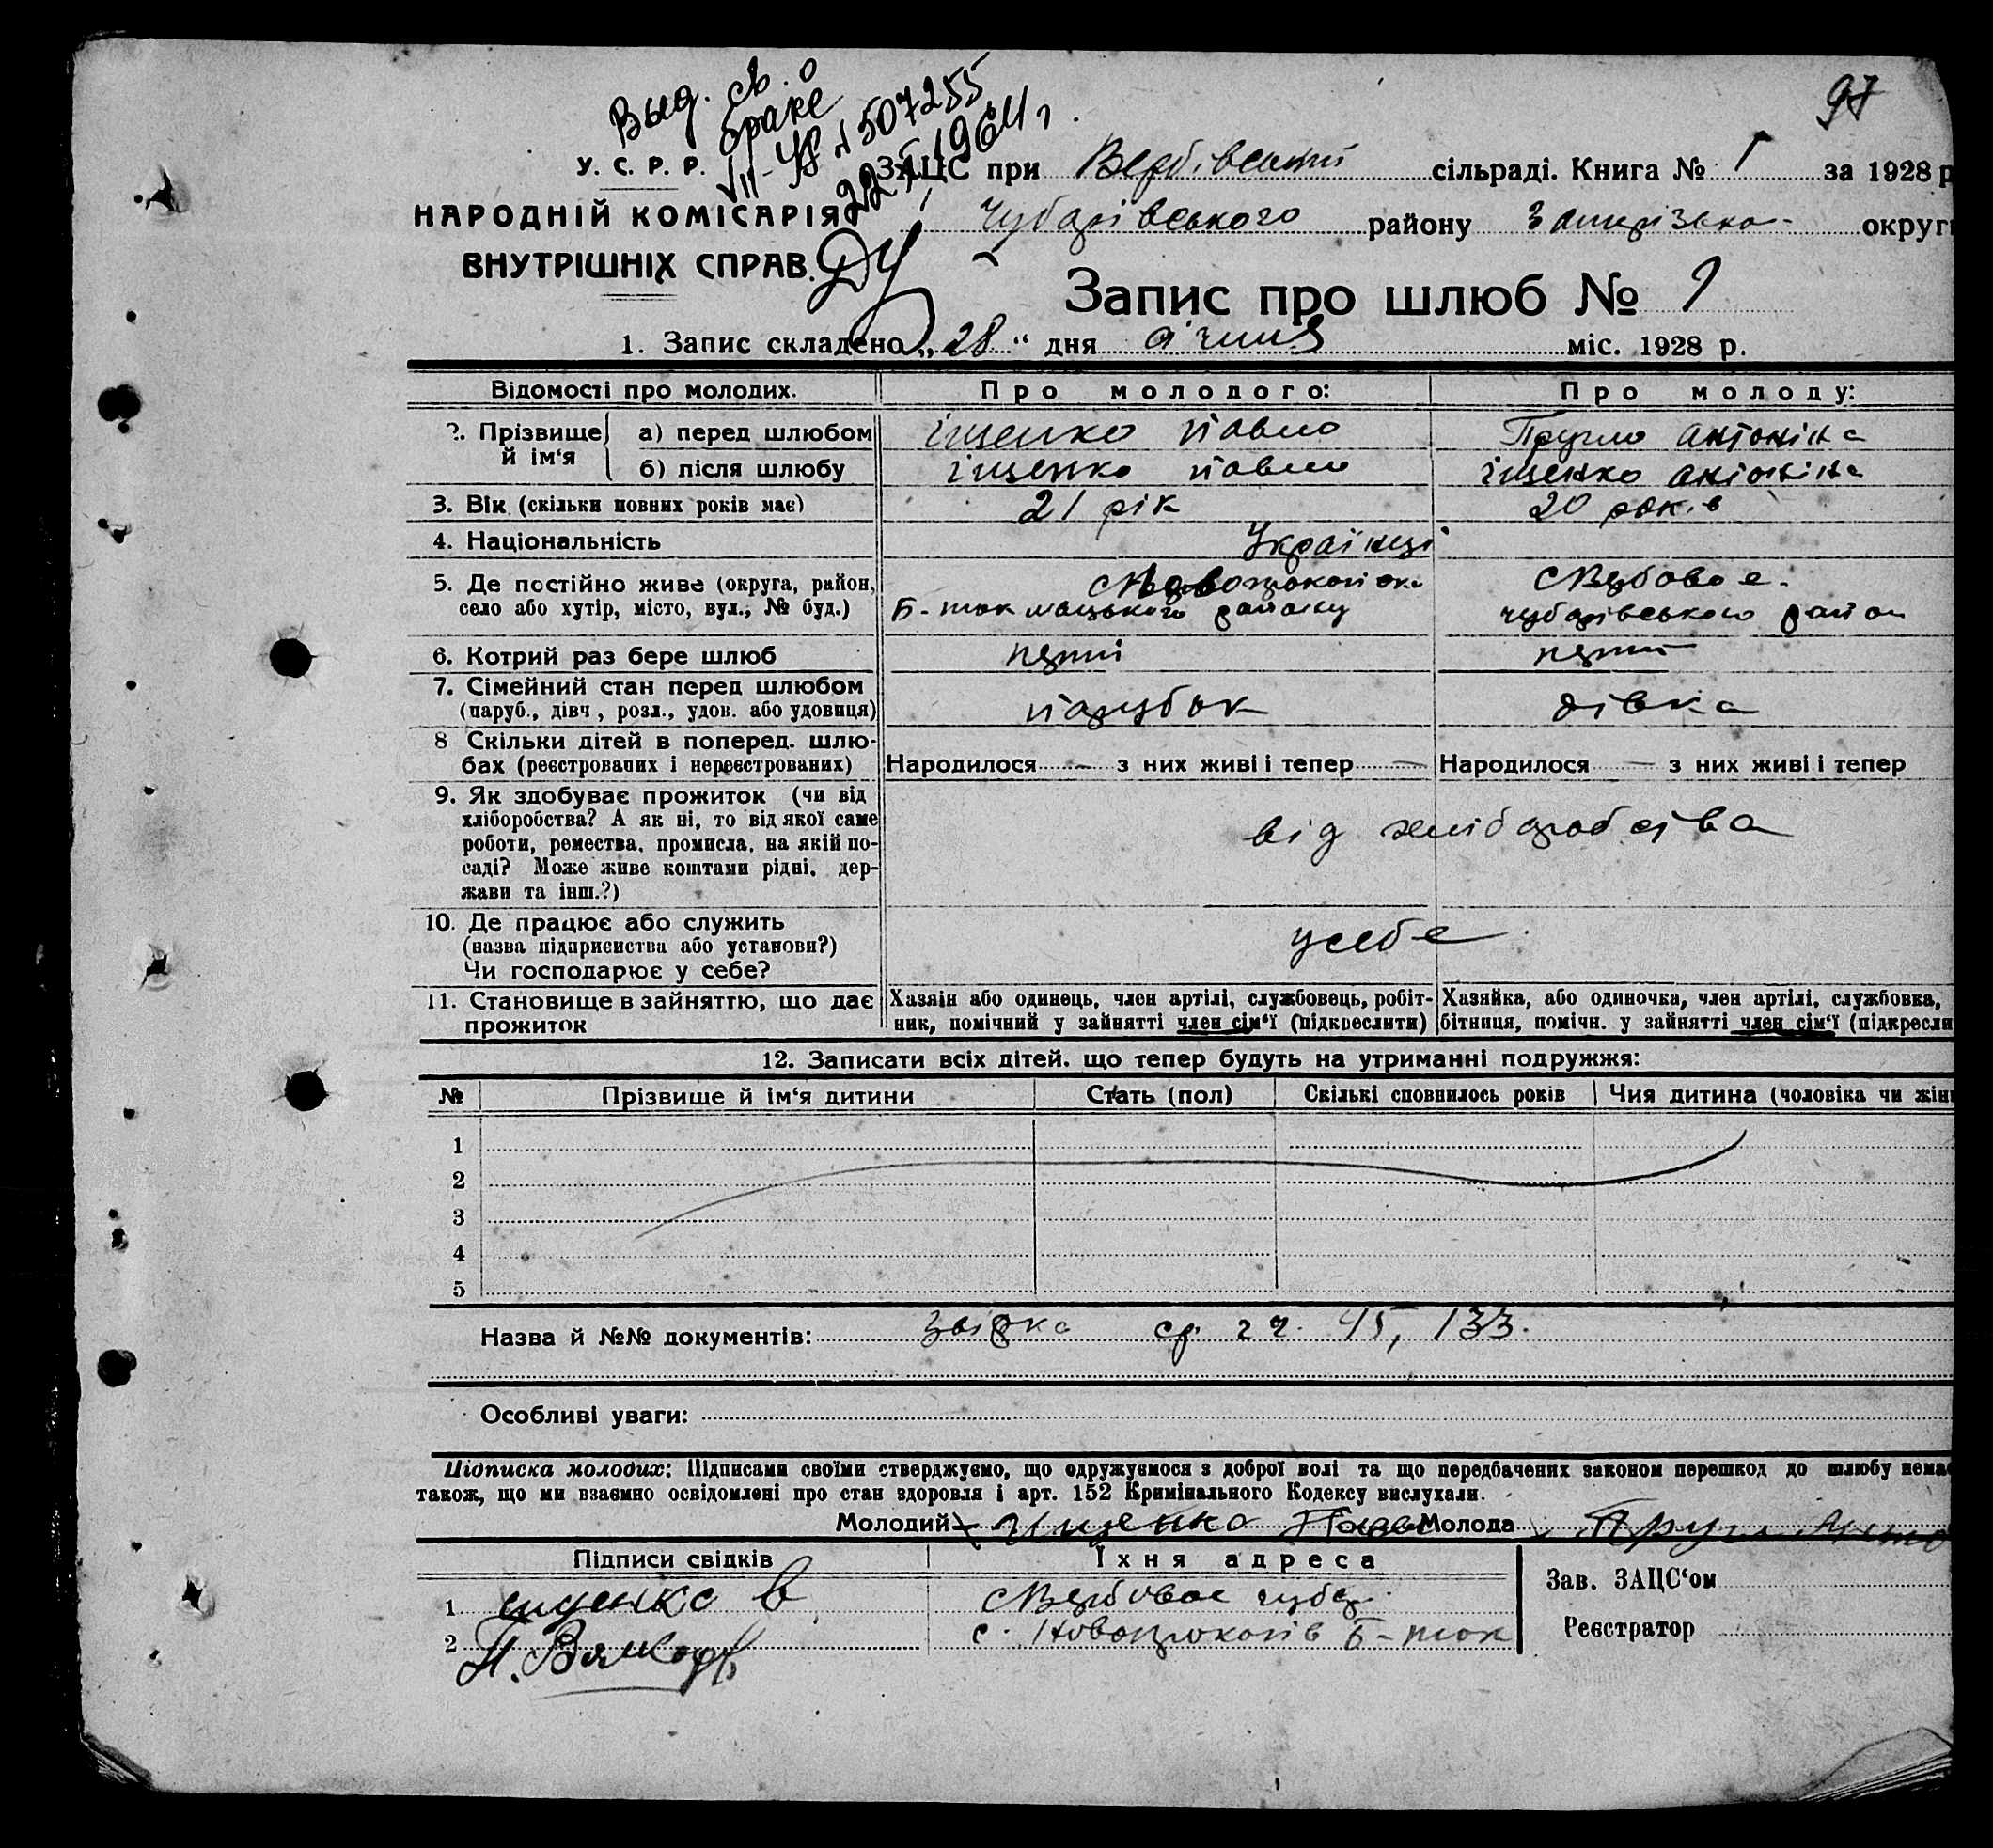 97
Выд. св. о
браке
VII-ЯР № 507255
1964 г.
У. С. Р. Р.
НАРОДНІЙ КОМІСАРІЯ
ВНУТРІШНІХ СПРАВ.
ЗАЦС при Вербівській сільраді. Книга № 1 за 1928 р
Чубарівського району Запорізько- округи
Запис про шлюб № 1
1. Запис складено „28“ дня січня міс. 1928 р.
Відомості про молодих. Про молодого: Про молоду:
2. Прізвище й ім‘я
а) перед шлюбом Іщенко Павло Антоніна
б) після шлюбу Іщенко Павло Іщенко Антоніна
3. Вік (скільки повних років має) 21 рік 20 років
4. Національність Українці
5. Де постійно живе (округа, район, с Вербове-
село або хутір, місто, вул., № буд.) Б-токмацького району чубарівського район
6. Котрий раз бере шлюб перший перший
7. Сімейний стан перед шлюбом
(паруб., дівч., розл., удов. або удовиця) парубок дівка
8 Скільки дітей в поперед. шлю-
бах (реєстрованих і нереєстрованих) Народилося — з них живі і тепер — Народилося — з них живі і тепер
9. Як здобуває прожиток (чи від
хліборобства? А як ні, то від якої саме
роботи, ремества, промисла, на якій по-
саді? Може живе коштами рідні, дер-
жави та інш.?)
від хліборобства
10. Де працює або служить
(назва підприємства або установи?)
Чи господарює у себе?
у себе
11. Становище в зайняттю, що дає
прожиток
Хазяін або одинець, член артілі, службовець, робіт-
ник, помічний у зайнятті член сім‘ї (підкреслити)
Хазяйка, або одиночка, член артілі, службовка,
бітниця, помічн. у зайнятті член сім‘ї (підкресли
12. Записати всіх дітей, що тепер будуть на утриманні подружжя:
№ Прізвище й ім‘я дитини Стать (пол) Скількі сповнилось років Чия дитина (чоловіка чи жін
1
2
3
4
5
Назва й №№ документів: 45, 133.
Особливі уваги:
Підписка молодих: Підписами своїми стверджуємо, що одружуємося з доброї волі та що передбачених законом перешкод до шлюбу нема
також, що ми взаємно освідомлені про стан здоровля і арт. 152 Кримінального Кодексу вислухали.
Молодий Ищенко Павел Молода
Підписи свідків Їхня адреса
1 ищенко в с Вербовое чубар.
2 с. Новопрокопів Б-ток
Зав. ЗАЦС‘ом
Реєстратор